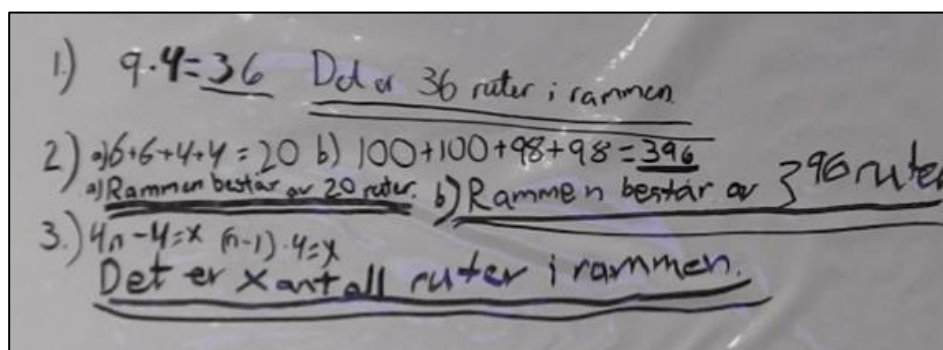 1.) 9·4=36 Det er 36 ruter i rammen
2.) a) 6+6+4+4=20 b) 100+100+98+98=396
a) Rammen består av 20 ruter. b) Rammen består av 396 ruter
3.) 4n-4=x (n-1)·4=x
Det er x antall ruter i rammen.